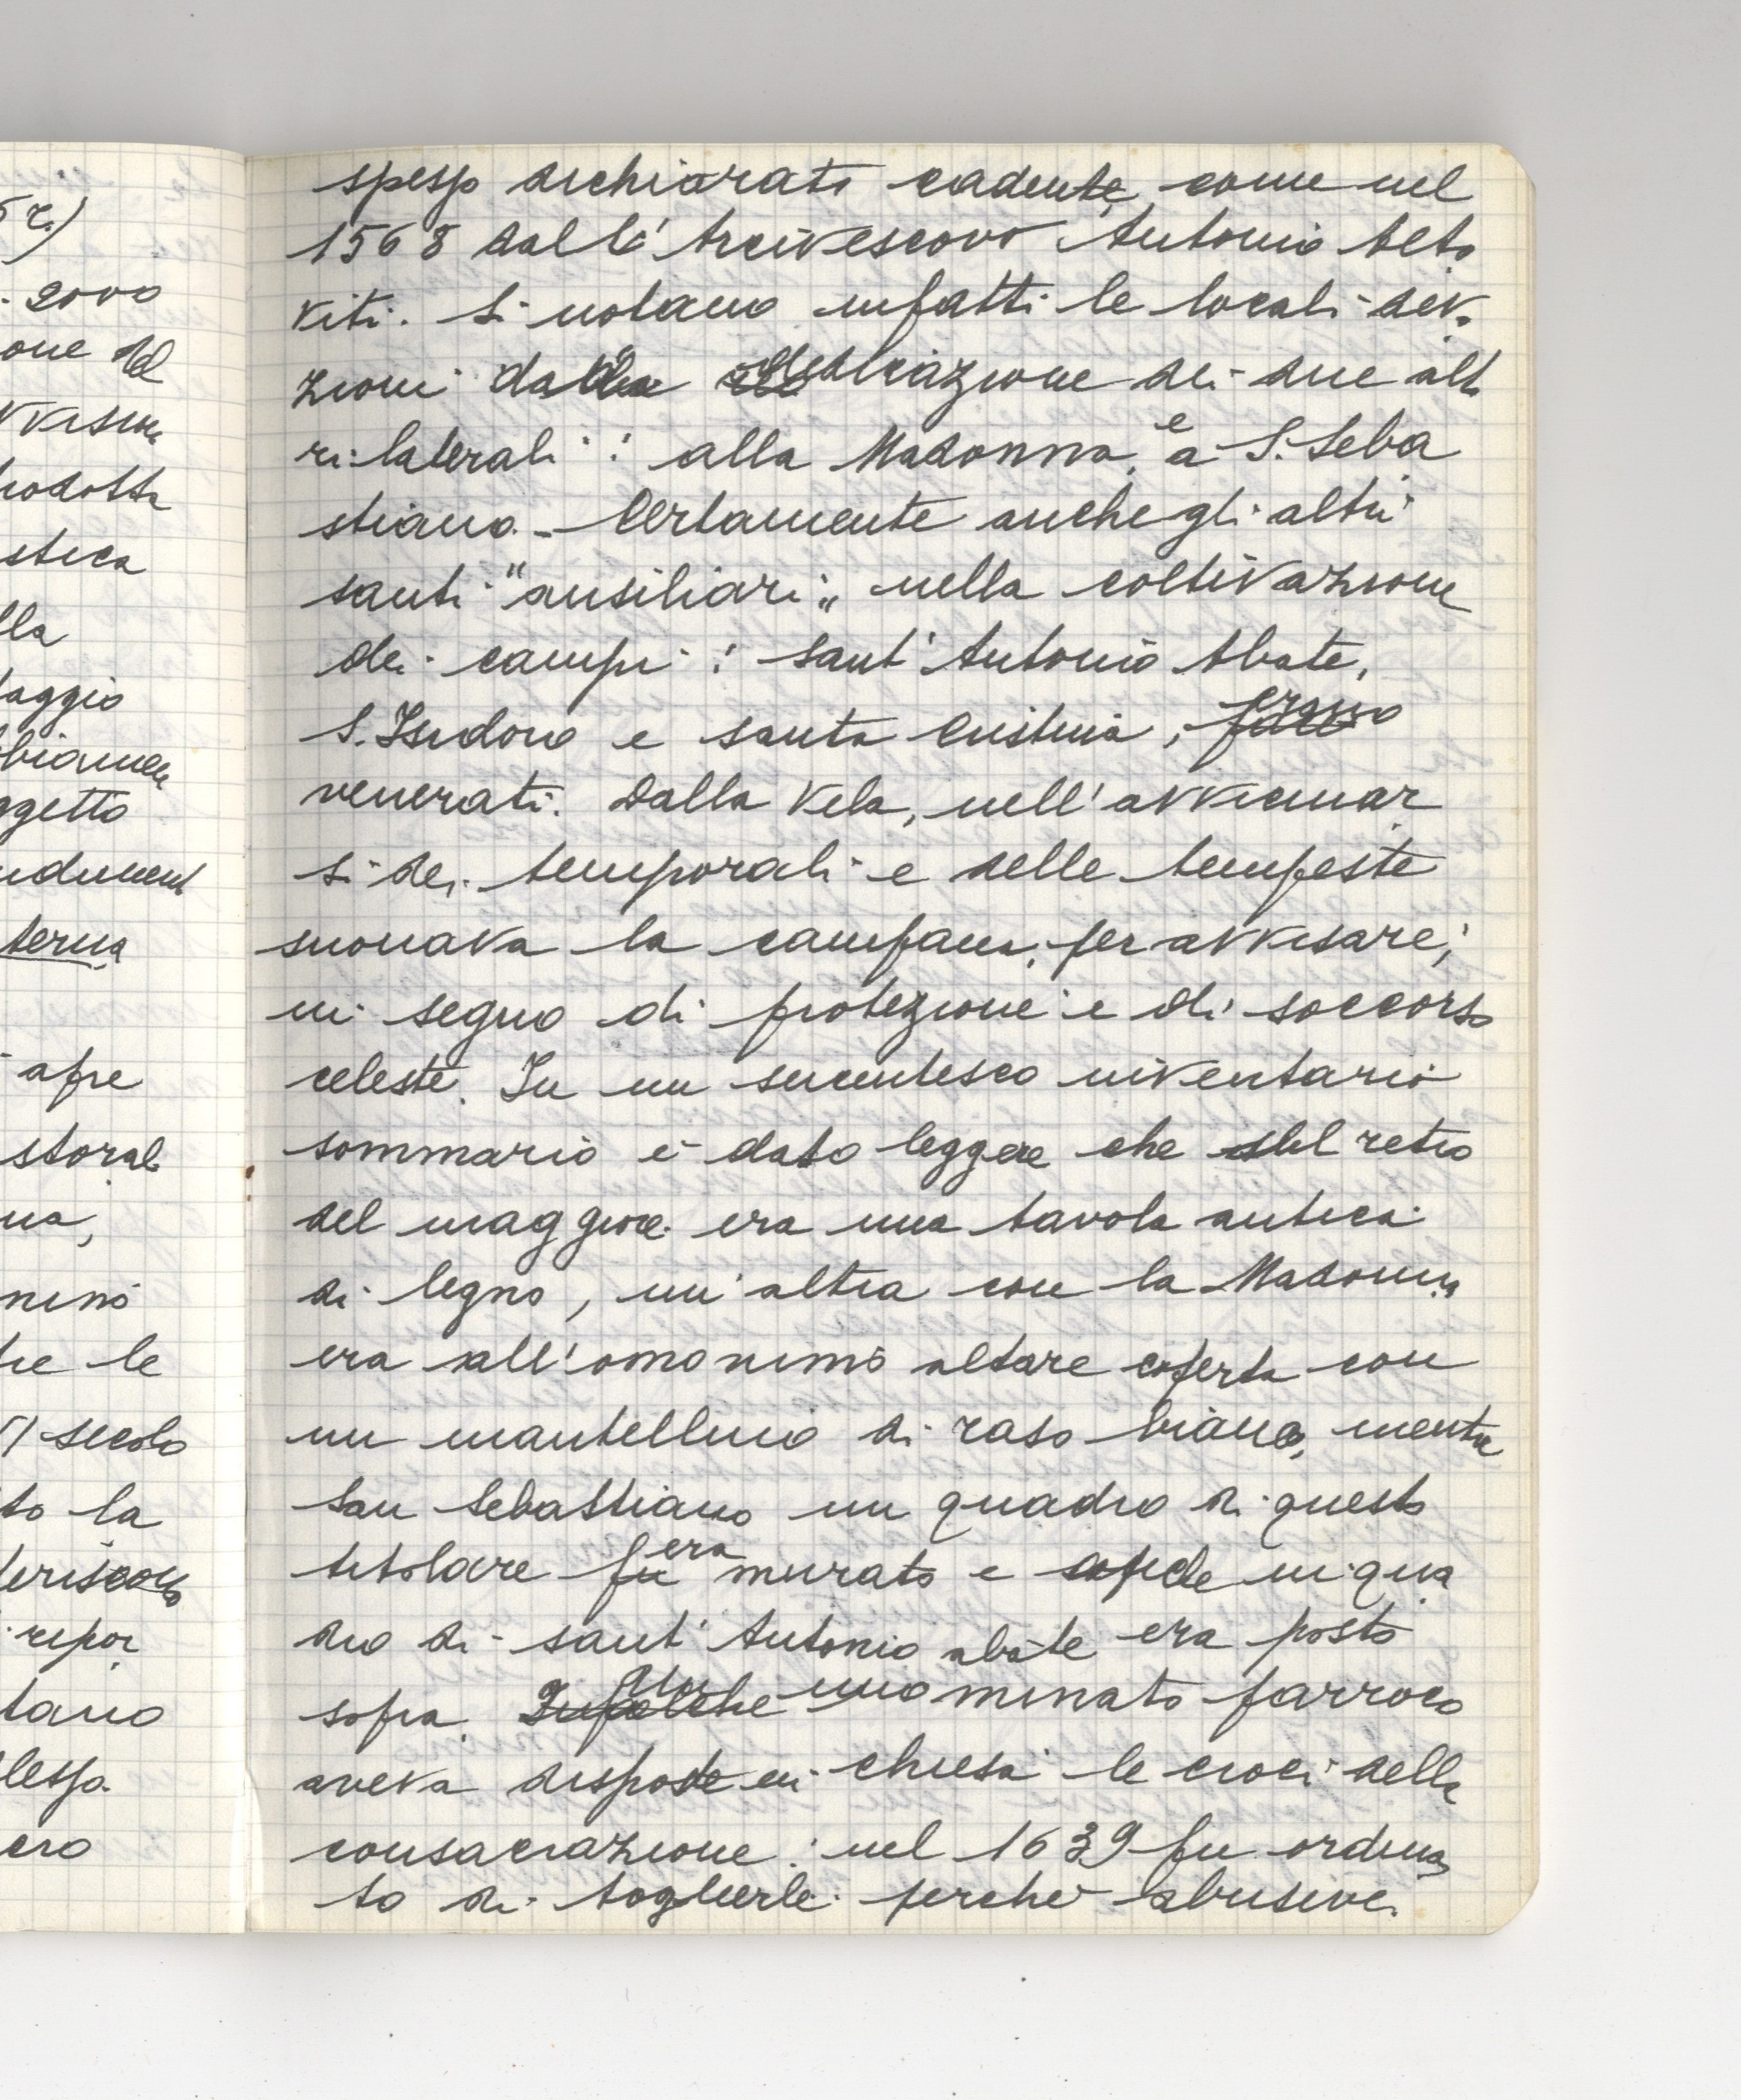 5 r.)
. 2000
one del
vvisione
rodotta
stica
lla
taggio
biamen
ggetto
ndiment
terna
apre
storal
na,
nino
tre le
secolo
to la
feriscono
repor
tano
lesso.
ero
spesso dichiarato cadente, come nel
1568 dall'Arcivescovo Antonio Alto
viti. Si notano infatti le locali devo
zioni dalla dedicazione dei due alta
ri laterali: alla Madonna, e a S. Seba
stiano. - Certamente anche gli altri
santi "ausiliari" nella coltivazione
dei campi: Sant'Antonio Abate,
S. Isidoro e santa Cristina, erano
venerati. Dalla Vela, nell'avvicinar
si dei temporali e delle tempeste
suonava la campana, per avvisare,
in segno di protezione e di soccorso
celeste. In un secentesco inventario
sommario è dato leggere che sul retro
del maggiore era una tavola antica
di legno, un'altra con la Madonna
era all'omonimo altare coperta con
un mantellino di raso bianco, mentre
San Sebastiano un quadro di questo
titolare era murato e un qua
dro di sant'Antonio abate era posto
sopra. Un innominato parroco
aveva disposte in chiesa le croci della
consacrazione: nel 1639 fu ordina
to di toglierle perché abusive.